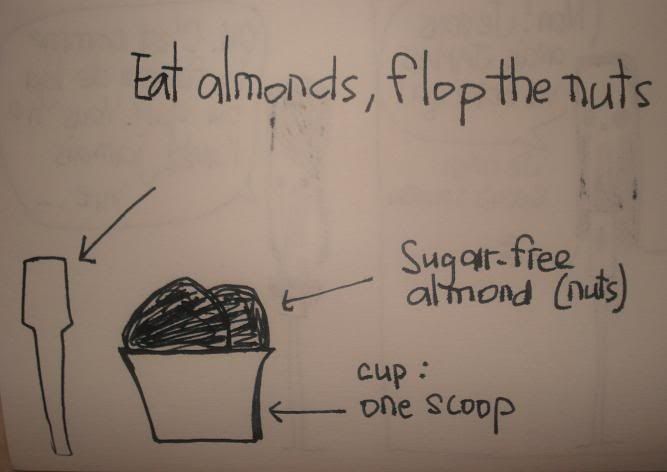 Eat almonds, flop the nuts
Sugar-free
almond (nuts)
cup :
one scoop